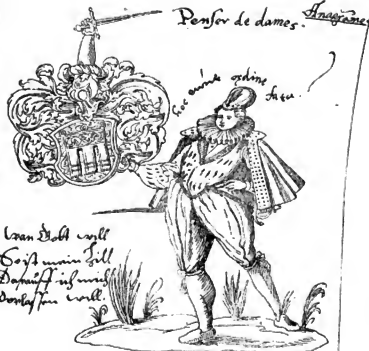 Penser de dames. Anagramme
hoc ordine fata
wan Gott will
So ist mein Zill
Darauff ich mich
Vorlassen will.